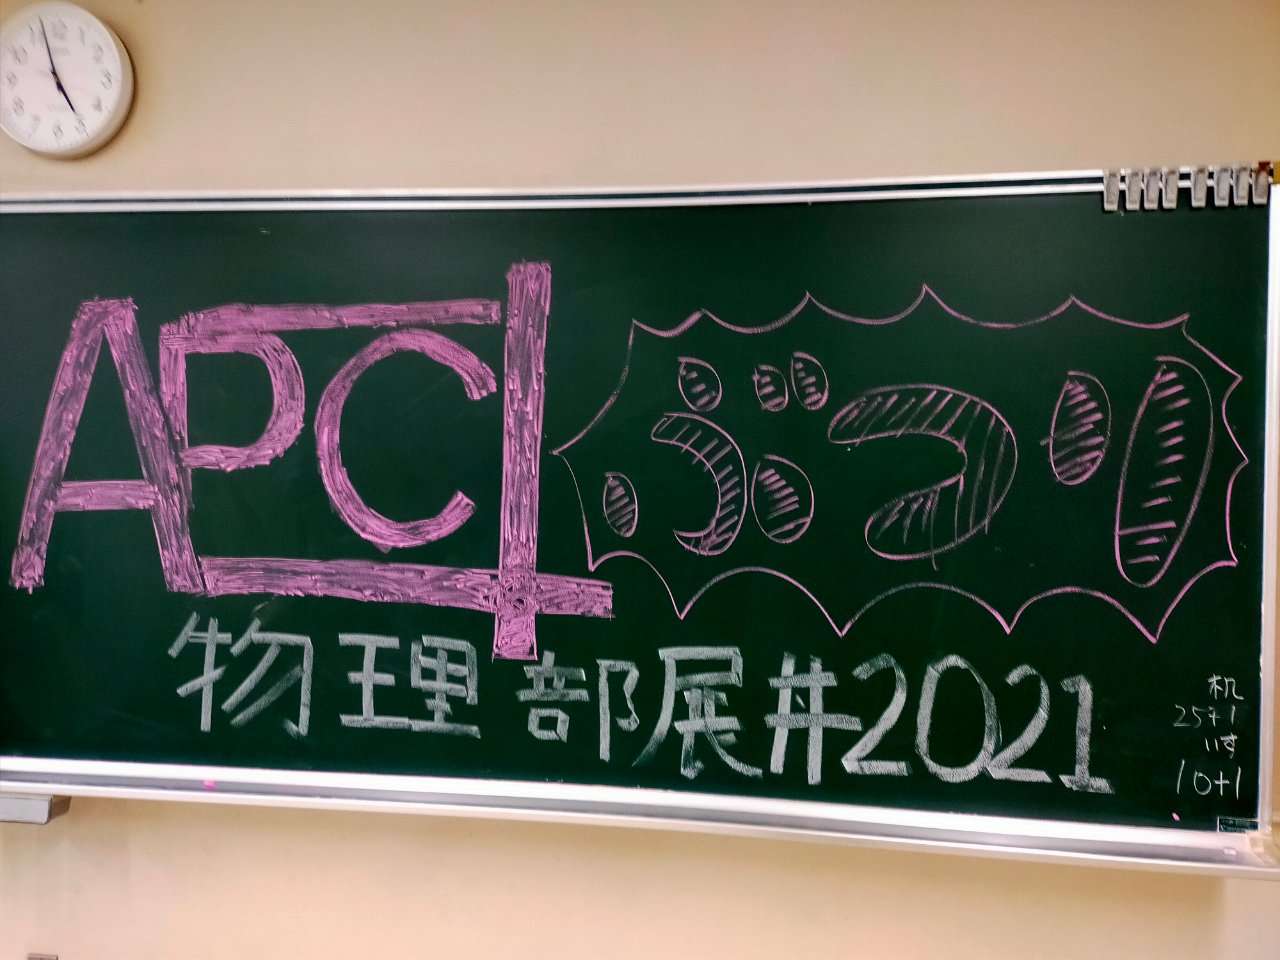 APC ぶつり
物理部展#2021
机
25+1
いす
10+1